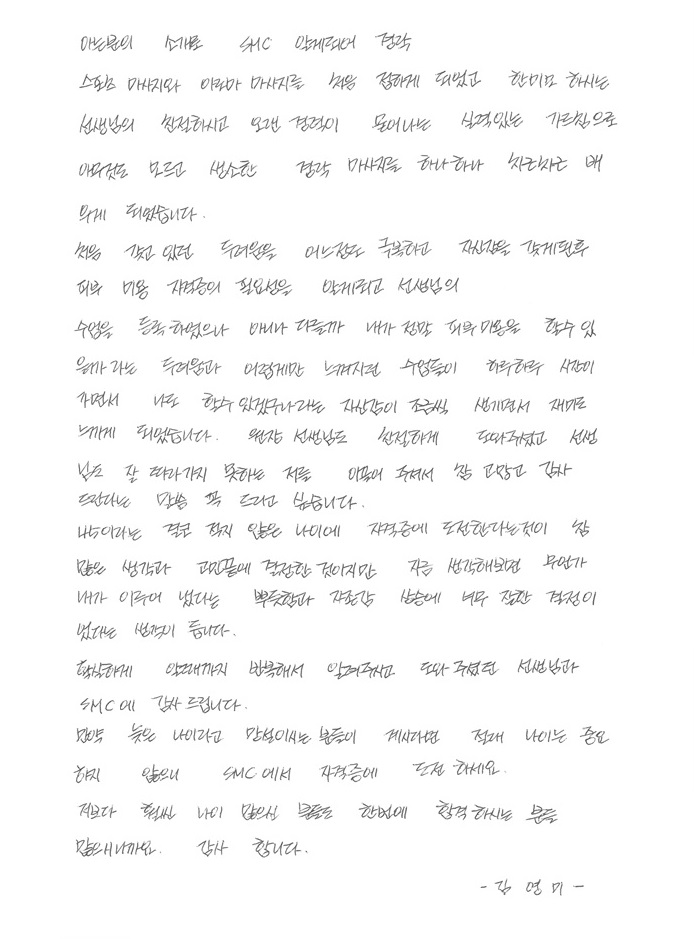 아는분의 소개로 SMC 알게되어 경락
스포츠 마사지와 아로마 마사지를 처음 접하게 되었고 한미모 하시는
선생님의 친절하시고 오랜 경력이 묻어나는 실력있는 가르침으로
아무것도 모르고 생소한 경락 마사지를 하나하나 차근차근 배
우게 되었습니다.
처음 갖고 있던 두려움을 어느정도 극복하고 자신감을 갖게된후
피부 미용 자격증의 필요성을 알게되고 선생님의
수업을 등록하였으나 아니나 다를까 내가 정말 피부미용을 할수 있
을까 라는 두려움과 어렵게만 느껴지던 수업들이 하루하루 시간이
가면서 나도 할수 있겠구나라는 자신감이 조금씩 생기면서 재미로
느끼게 되었습니다. 원장 선생님도 친절하게 도와주셨고 선생
님도 잘 따라가지 못하는 저를 이끌어 주셔서 참 고맙고 감사
드린다는 말씀 꼭 드리고 싶습니다.
나누이라는 결코 적지 않은 나이에 자격증에 도전한다는것이 참
많은 생각과 고민끝에 결정한 것이지만 지금 생각해보면 무언가
내가 이루어 냈다는 뿌듯함과 자존감 상승에 너무 잘한 결정이
었다는 생각이 듭니다.
확실하게 알때까지 반복해서 알려주시고 도와 주셨던 선생님과
SMC에 감사 드립니다.
만약 늦은 나이라고 망설이시는 분들이 계시다면 절대 나이는 중요
하지 않으니 SMC에서 자격증에 도전 하세요.
저보다 훨씬 나이 많으신 분들도 한번에 합격하시는 분들
많으시니까요. 감사 합니다.
- 김 영 미 -